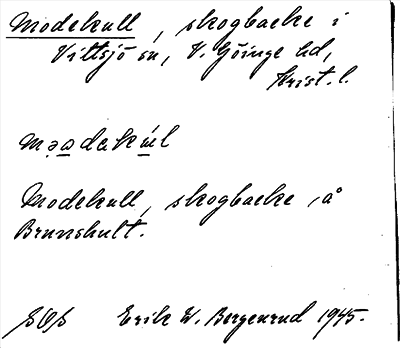 Modekull, skogbacke i
Vittsjö sn, V. Göinge hd,
Krist. l.
Modekull, skogbacke å
Brunshult.
SOS Erik W. Bergenrud 1945.